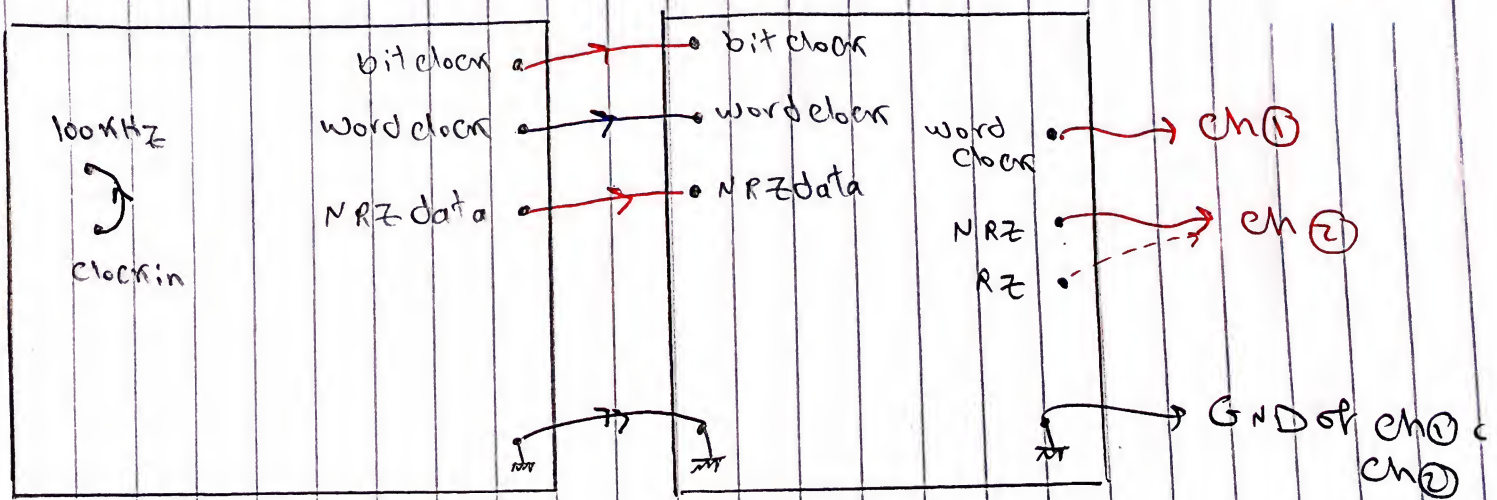 100KHZ
clockin
bit clock
word clock
NRZ data
bit clock
word clock
NRZ data
word
clock
NRZ
RZ
ch①
ch②
GND of ch①
ch②